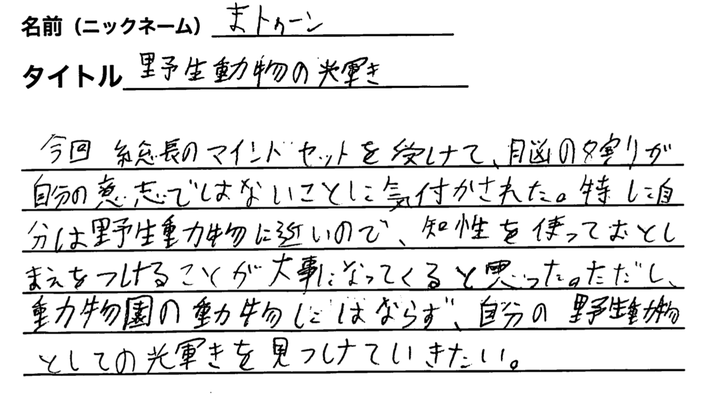 名前（ニックネーム） まトゥーン
タイトル 野生動物の光輝き
今回 総長のマインドセットを受けて、脳の8割りが
自分の意志ではないことに気付かされた。特に自
分は野生動物に近いので、知性を使っておとし
まえをつけることが大事になってくると思った。ただし、
動物園の動物にはならず、自分の野生動物
としての光輝きを見つけていきたい。